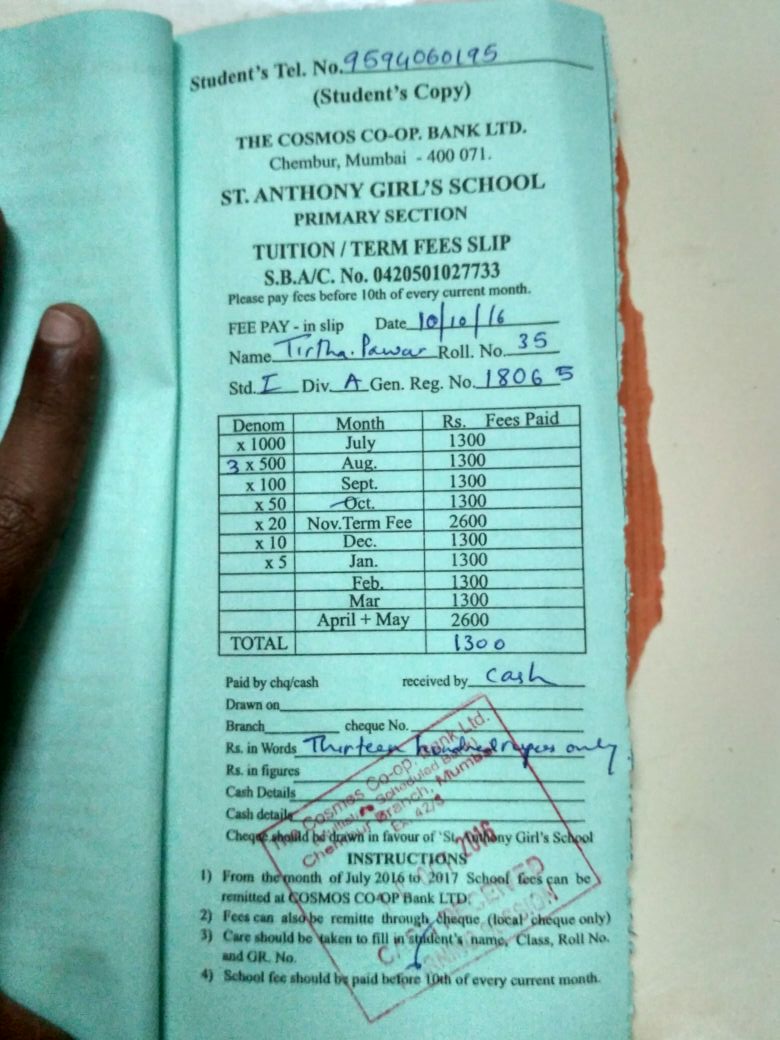 Student's Tel. No. 9594060195
(Student's Copy)
THE COSMOS CO-OP. BANK LTD.
Chembur, Mumbai - 400 071.
ST. ANTHONY GIRL'S SCHOOL
PRIMARY SECTION
TUITION / TERM FEES SLIP
S.B.A/C. No. 0420501027733
Please pay fees before 10th of every current month.
FEE PAY - in slip Date 10/10/16
Name Tirtha. Pawar Roll. No. 35
Std. I Div. A Gen. Reg. No. 18065
Denom Month Rs. Fees Paid
x 1000 July 1300
3 x 500 Aug. 1300
x 100 Sept. 1300
x 50 Oct. 1300
x 20 Nov.Term Fee 2600
x 10 Dec. 1300
x 5 Jan. 1300
Feb. 1300
Mar 1300
April + May 2600
TOTAL 1300
Paid by chq/cash received by cash
Drawn on
Branch cheque No.
Rs. in Words Thirteen hundred rupees only
Rs. in figures
Cash Details
Cash details
Cheque should be drawn in favour of 'St. Anthony Girl's School
The Cosmos Co-op. Bank Ltd.
Scheduled Bank)
Chembur Branch, Mumbai
Ex. 42/3
2016
INSTRUCTIONS
1) From the month of July 2016 to 2017 School fees can be
remitted at COSMOS CO-OP Bank LTD.
2) Fees can also be remitte through cheque (local cheque only)
3) Care should be taken to fill in student's name, Class, Roll No.
and GR. No.
4) School fee should be paid before 10th of every current month.